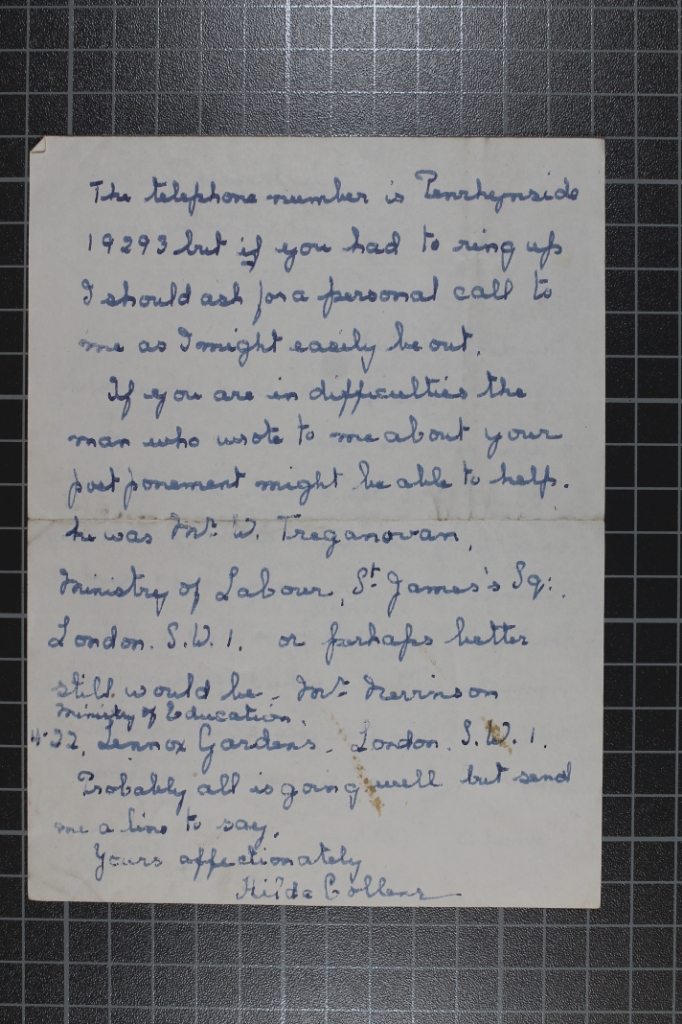 The telephone number is Penrhynside
19293 but if you had to ring up
I should ask for a personal call to
me as I might easily be out.
If you are in difficulties the
man who wrote to me about your
postponement might be able to help.
he was Mr. W. Treganowan,
Ministry of Labour, St. James's Sq:.
London. S.W.1. or perhaps better
still would be. Mr.
Ministry of Education,
22, Lennox Gardens. London. S.W.1.
Probably all is going well but send
me a line to say.
Yours affectionately
Hilda Collens